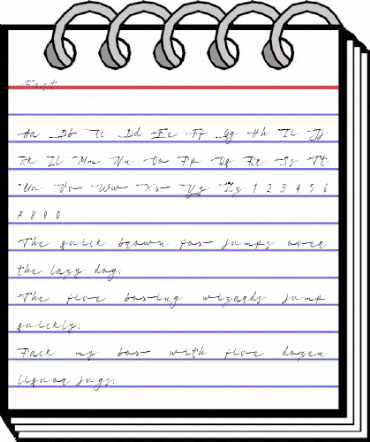 Fast
Aa Bb Cc Dd Ee Ff Gg Hh Ii Jj
Kk Ll Mm Nn Oo Pp Qq Rr Ss Tt
Uu Vv Ww Xx Yy Zz 1 2 3 4 5 6
7 8 9 0
The quick brown fox jumps over
the lazy dog.
The five boxing wizards jump
quickly.
Pack my box with five dozen
liquor jugs.